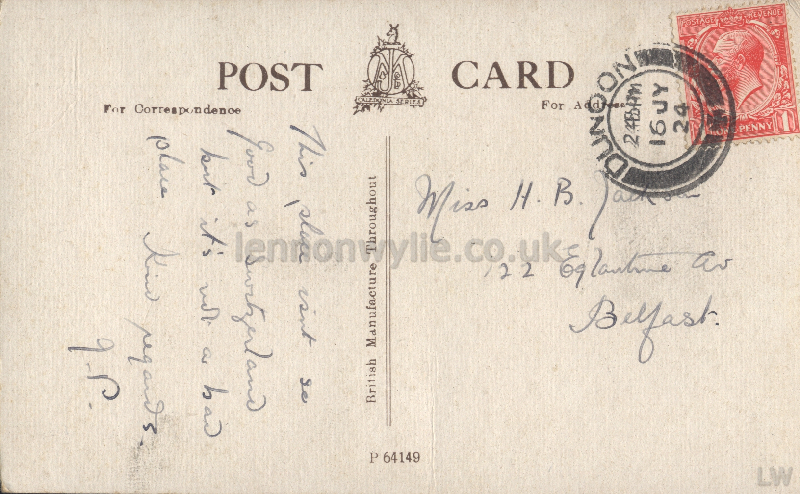 POST CARD
CALEDONIA SERIES
For Correspondence
For Address
POSTAGE REVENUE
ONE PENNY
DUNOON
16 JY
24
This place isnt so
Good as Switzerland
but it's not a bad
place Kind regards.
J.P.
British Manufacture Throughout
Miss H. B. Jackson
22 Eglantine Av
Belfast.
lennonwylie.co.uk
P 64149
LW